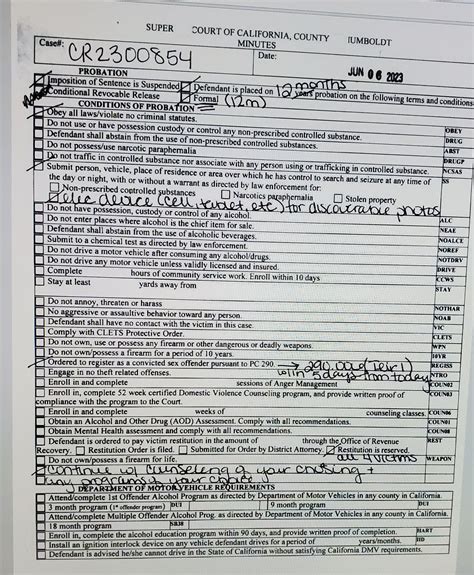 SUPER COURT OF CALIFORNIA, COUNTY HUMBOLDT
MINUTES
Case#: CR2300854
Date: JUN 06 2023
PROBATION
Imposition of Sentence is Suspended
Defendant is placed on 12 months years probation on the following terms and conditions
Conditional Revocable Release
Formal (12m)
CONDITIONS OF PROBATION
Obey all laws/violate no criminal statutes. OBEY
Do not use or have possession custody or control any non-prescribed controlled substance. DRUG
Defendant shall abstain from the use of non-prescribed controlled substance. ABST
Do not possess/use narcotic paraphernalia DRUGP
Do not traffic in controlled substance nor associate with any person using or trafficking in controlled substance. NCSAS
Submit person, vehicle, place of residence or area over which he has control to search and seizure at any time of SS
the day or night, with or without a warrant as directed by law enforcement for:
Non-prescribed controlled substances Narcotics paraphernalia Stolen property
elec device (cell, tablet, etc) for photos
Do not have possession, custody or control of any alcohol. ALC
Do not enter places where alcohol is the chief item for sale. NEAE
Defendant shall abstain from the use of alcoholic beverages. NOALCE
Submit to a chemical test as directed by law enforcement. NOREF
Do not drive a motor vehicle after consuming any alcohol/drugs. NOTDRV
Do not drive any motor vehicle unless validly licensed and insured. DRIVE
Complete hours of community service work. Enroll within 10 days CCWS
Stay at least yards away from STAY
Do not annoy, threaten or harass NOTHAR
No aggressive or assaultive behavior toward any person. NOAB
Defendant shall have no contact with the victim in this case. VIC
Comply with CLETS Protective Order. CLETS
Do not own, use or possess any firearm or other dangerous or deadly weapons. WPN
Do not own/possess a firearm for a period of 10 years. 10YR
Ordered to register as a convicted sex offender pursuant to PC 290. → 290.006 (Tier 1) REGISS
Engage in no theft related offenses. w/in 5 days from today NTRO
Enroll in and complete sessions of Anger Management COUN02
Enroll in, complete 52 week certified Domestic Violence Counseling program, and provide written proof of COUN03
compliance with the program to the Court.
Enroll in and complete weeks of counseling classes. COUN06
Obtain an Alcohol and Other Drug (AOD) Assessment. Comply with all recommendations. COUN01
Obtain Mental Health assessment and comply with all recommendations. COUN08
Defendant is ordered to pay victim restitution in the amount of through the Office of Revenue REST
Recovery. Restitution Order is filed. Submitted for Order by District Attorney. Restitution is reserved.
Do not own/possess a firearm for life. all 4 victims WEAPON
Continue w/ counseling of your choosing +
any programs of your choice
DEPARTMENT OF MOTOR VEHICLE REQUIREMENTS
Attend/complete 1st Offender Alcohol Program as directed by Department of Motor Vehicles in any county in California.
3 month program (1st offender program) DUI 9 month program DUI
Attend/complete Multiple Offender Alcohol Prog. as directed by Department of Motor Vehicles in any county in California.
18 month program SB38
Enroll in, complete the alcohol education program within 90 days, and provide written proof of completion. HART
Install an ignition interlock device on any vehicle defendant drives for a period of years/months. IID
Defendant is advised he/she cannot drive in the State of California without satisfying California DMV requirements.